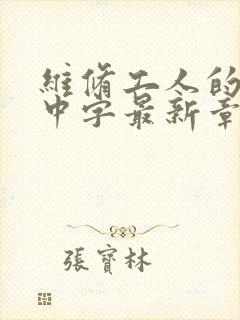 維修工人的
中字最新章
張寶林